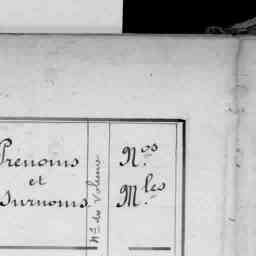 Prénoms
et
Surnoms
Nos du Volume
Nos
Mles